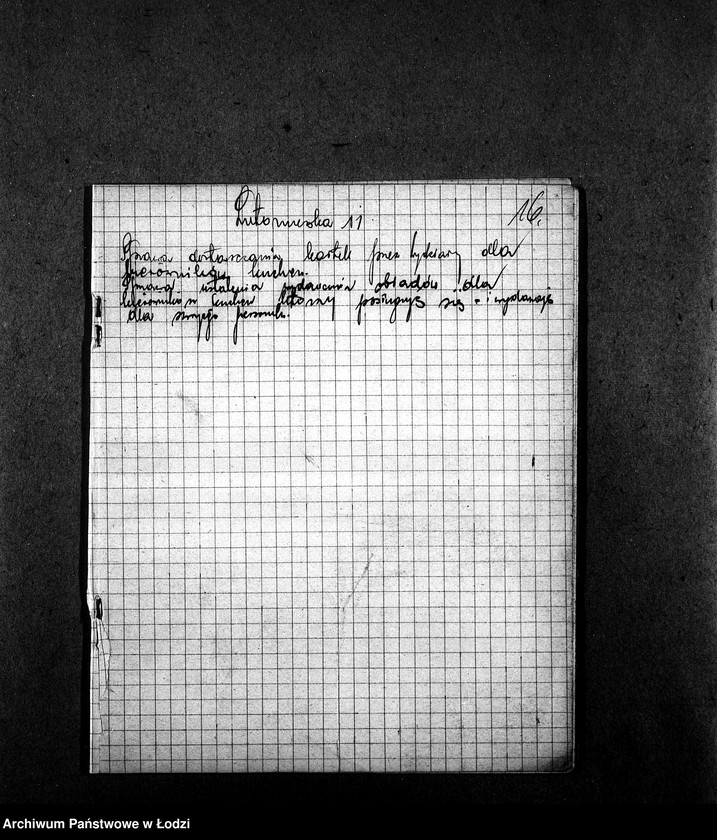 Lutomierska 11
16.
Sprawa dostarczania kartek przez wydziały dla
kierowników kuchen.
Sprawa ustalenia wydawania obiadów dla
kierowników kuchen którzy posługują się i wydawają
dla swojego personelu.
Archiwum Państwowe w Łodzi